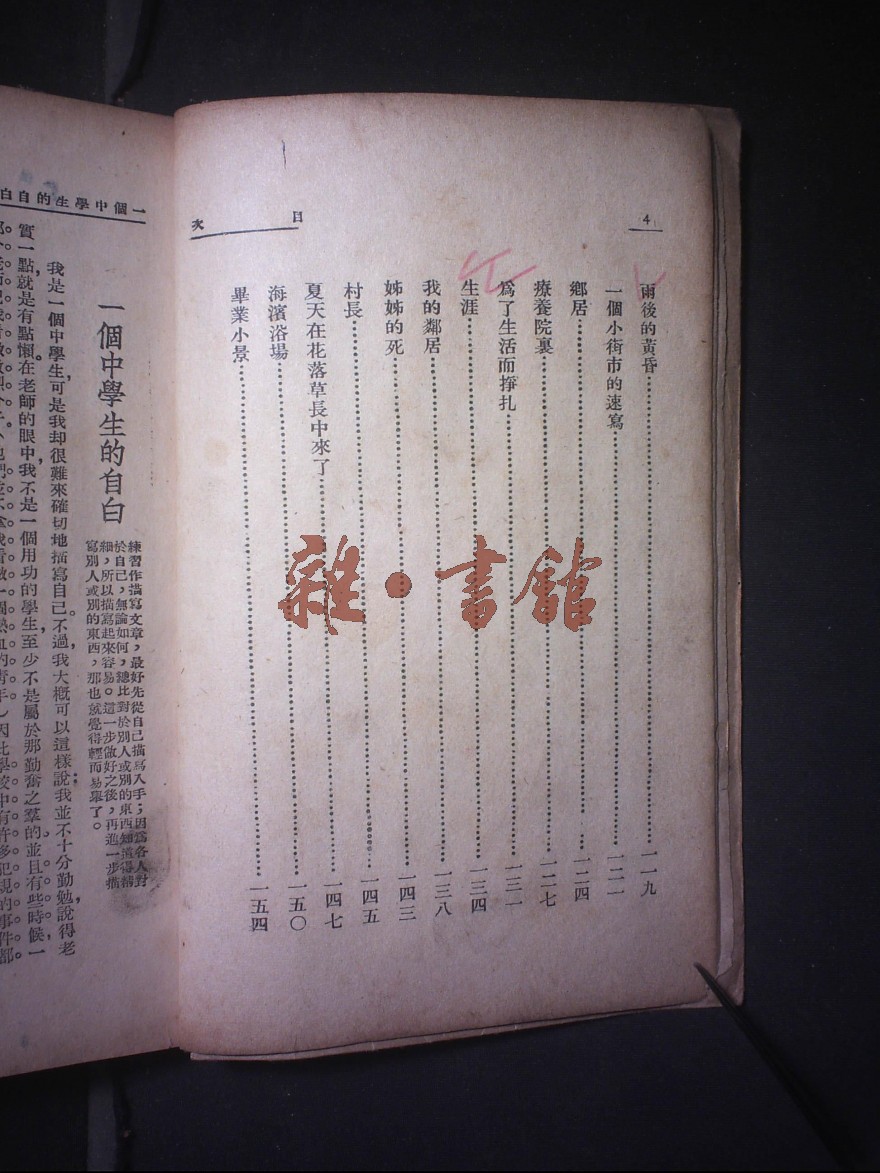 4
目次
雨後的黃昏……一一九
一個小街市的速寫……一二一
鄉居……一二四
療養院裏……一二七
爲了生活而掙扎……一三一
生涯……一三四
我的鄰居……一三八
姊姊的死……一四三
村長……一四五
夏天在花落草長中來了……一四七
海濱浴場……一五〇
畢業小景……一五四
雜·書館
一個中學生的自白
一個中學生的自白
練習作描寫文章，最好先從自己描寫入手；因爲各人對
於自己，無論如何，總比對於別人或別的東西知道得精
細，所以描寫起來容易。這一步做好之後，再進一步描
寫別人或別的東西，那也就覺得輕而易舉了。
我是一個中學生，可是我却很難來確切地描寫自己。不過，我大概可以這樣說：我並不十分勤勉，說得老
實一點，就是有點懶。在老師的眼中，我不是一個用功的學生，至少不是屬於那勤奮之羣的，並且有些時候，一